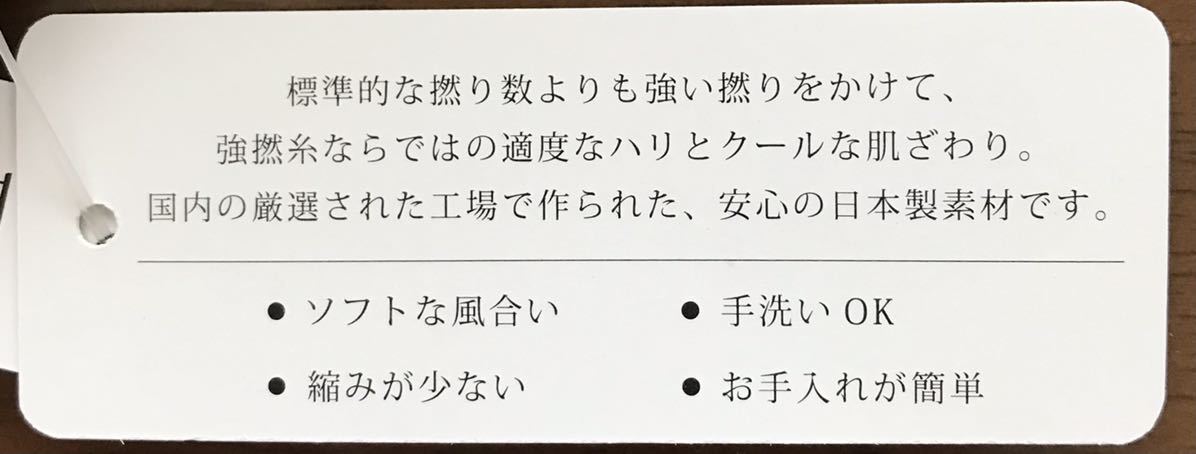 標準的な撚り数よりも強い撚りをかけて、
強撚糸ならではの適度なハリとクールな肌ざわり。
国内の厳選された工場で作られた、安心の日本製素材です。
● ソフトな風合い
● 手洗い OK
● 縮みが少ない
● お手入れが簡単